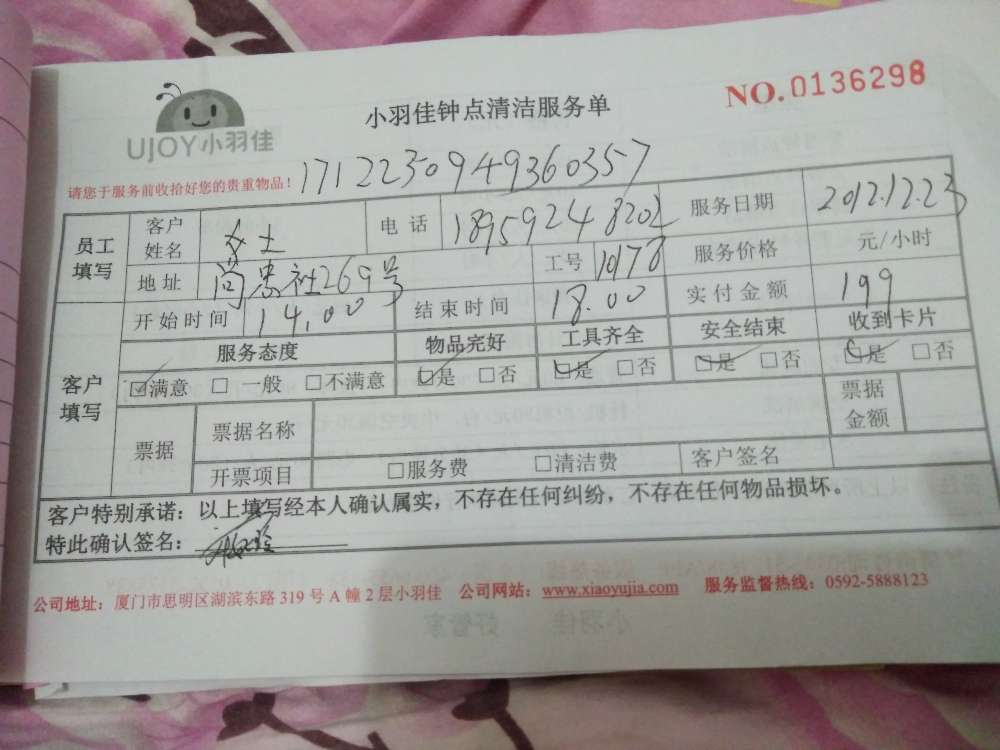 UJOY小羽佳
小羽佳钟点清洁服务单
NO.0136298
请您于服务前收拾好您的贵重物品！
1712230949360357
员工填写 客户姓名 女士 电话 18959248202 服务日期 2012.12.23
地址 尚忠社269号 工号 10178 服务价格 元/小时
开始时间 14.00 结束时间 18.00 实付金额 199
客户填写 服务态度 物品完好 工具齐全 安全结束 收到卡片
☑满意 □一般 □不满意 ☑是 □否 ☑是 □否 ☑是 □否 ☑是 □否
票据 票据名称 票据金额
开票项目 □服务费 □清洁费 客户签名
客户特别承诺：以上填写经本人确认属实，不存在任何纠纷，不存在任何物品损坏。
特此确认签名：
公司地址：厦门市思明区湖滨东路319号A幢2层小羽佳 公司网站：www.xiaoyujia.com 服务监督热线：0592-5888123